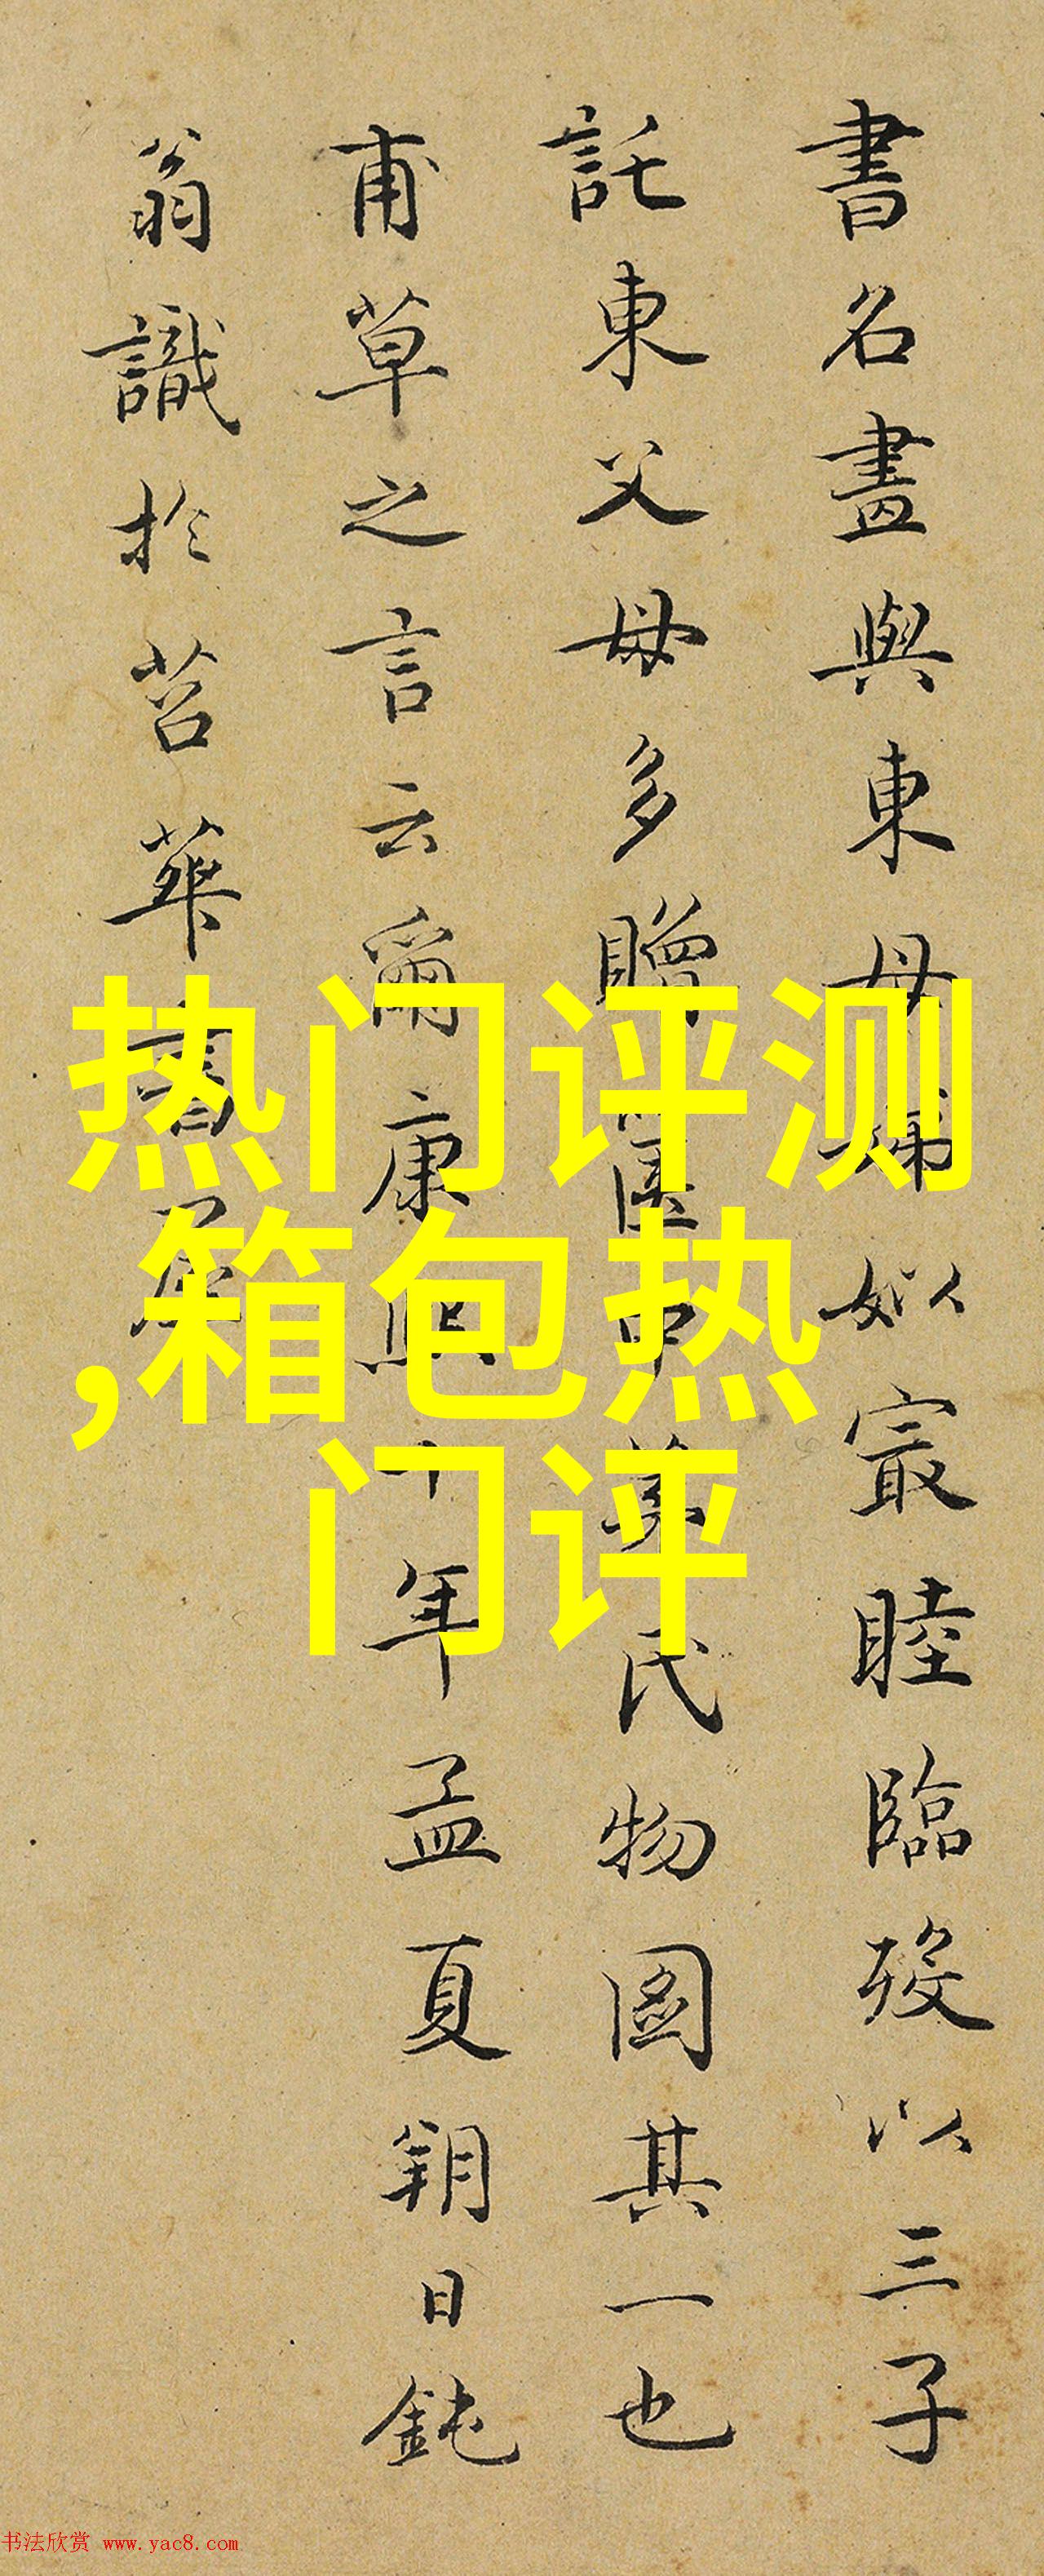 書名畫與東母婦如以寂睦臨歿以三子
託東父母多贈医中美氏物圖其一也
甫草之言云爾康熙十年孟夏朔日鈍
翁識於苕華書屋
热门评测
,箱包热
门评
书法欣赏 www.yac8.com